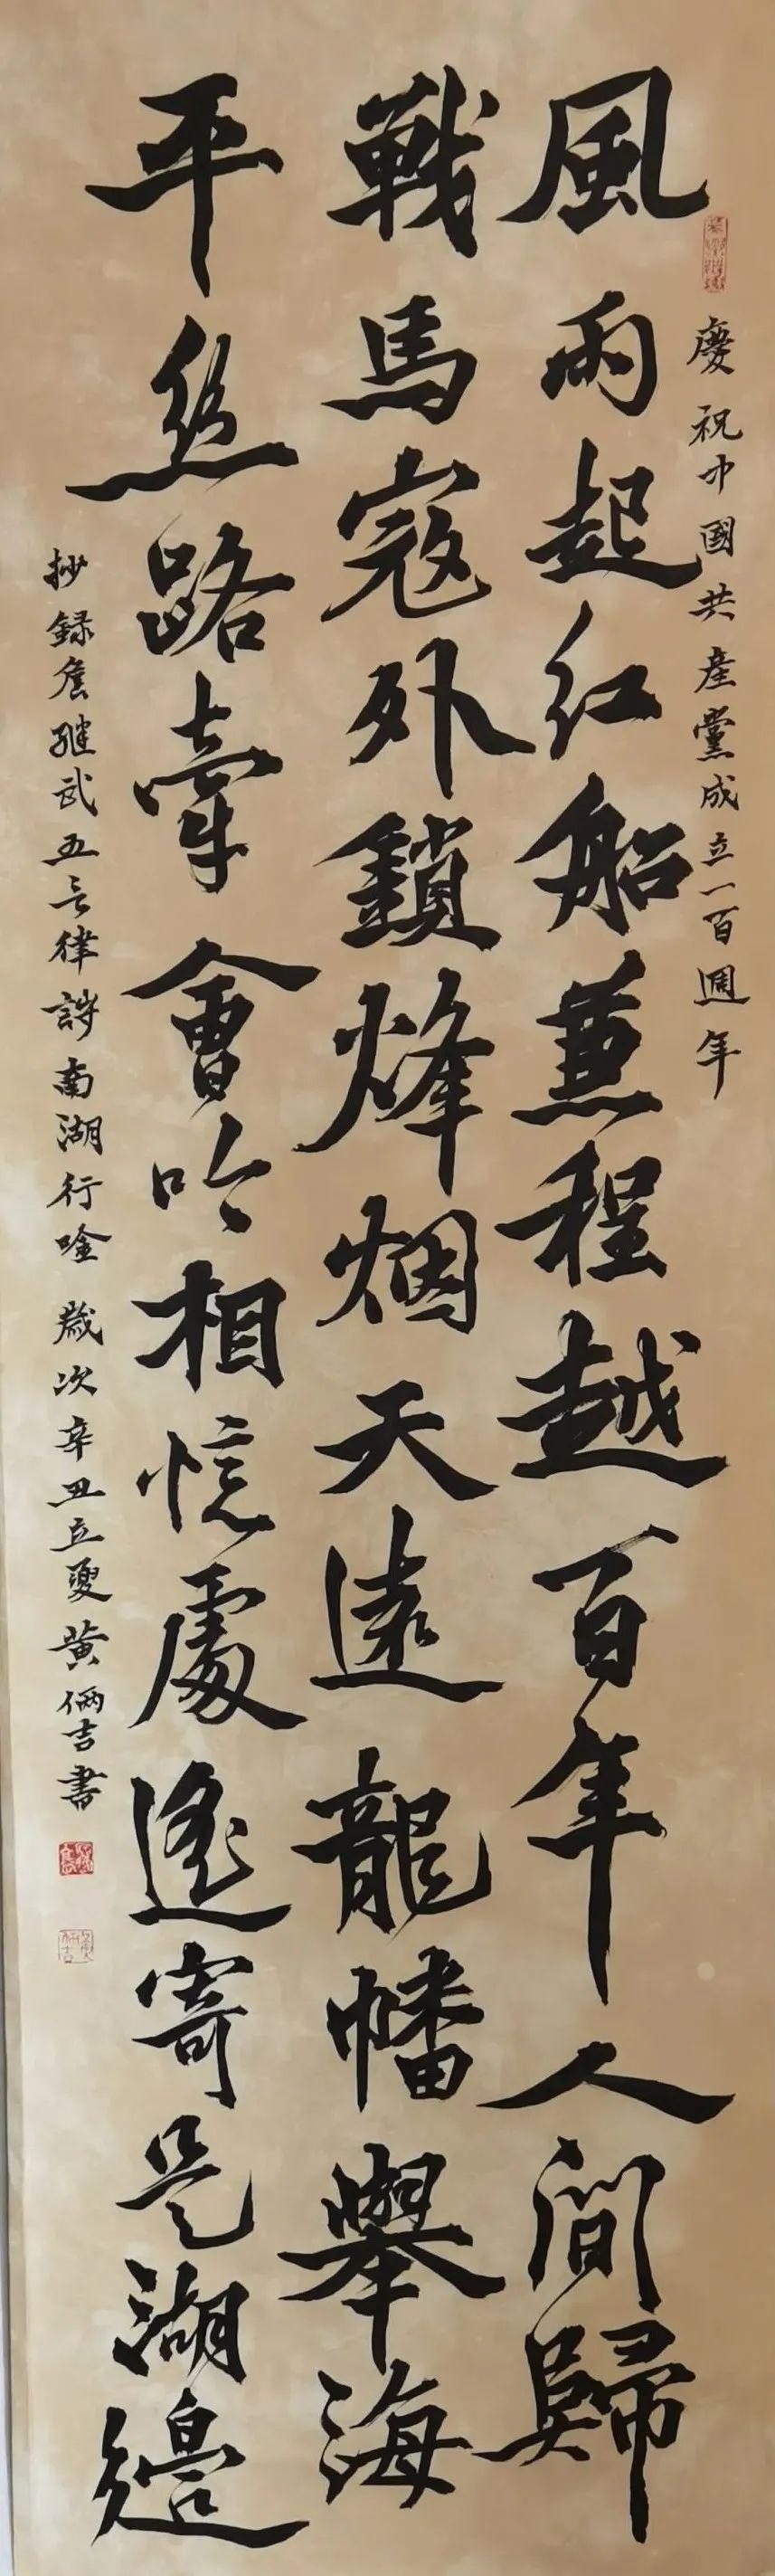 慶祝中國共產黨成立一百週年
風雨起紅船兼程越百年人間歸
戰馬寇外鎖烽烟天遠龍幡舉海
平絲路牽會吟相憶處遙寄是湖邊
抄録詹継武五言律詩南湖行唫 歲次辛丑立夏黃俩吉書